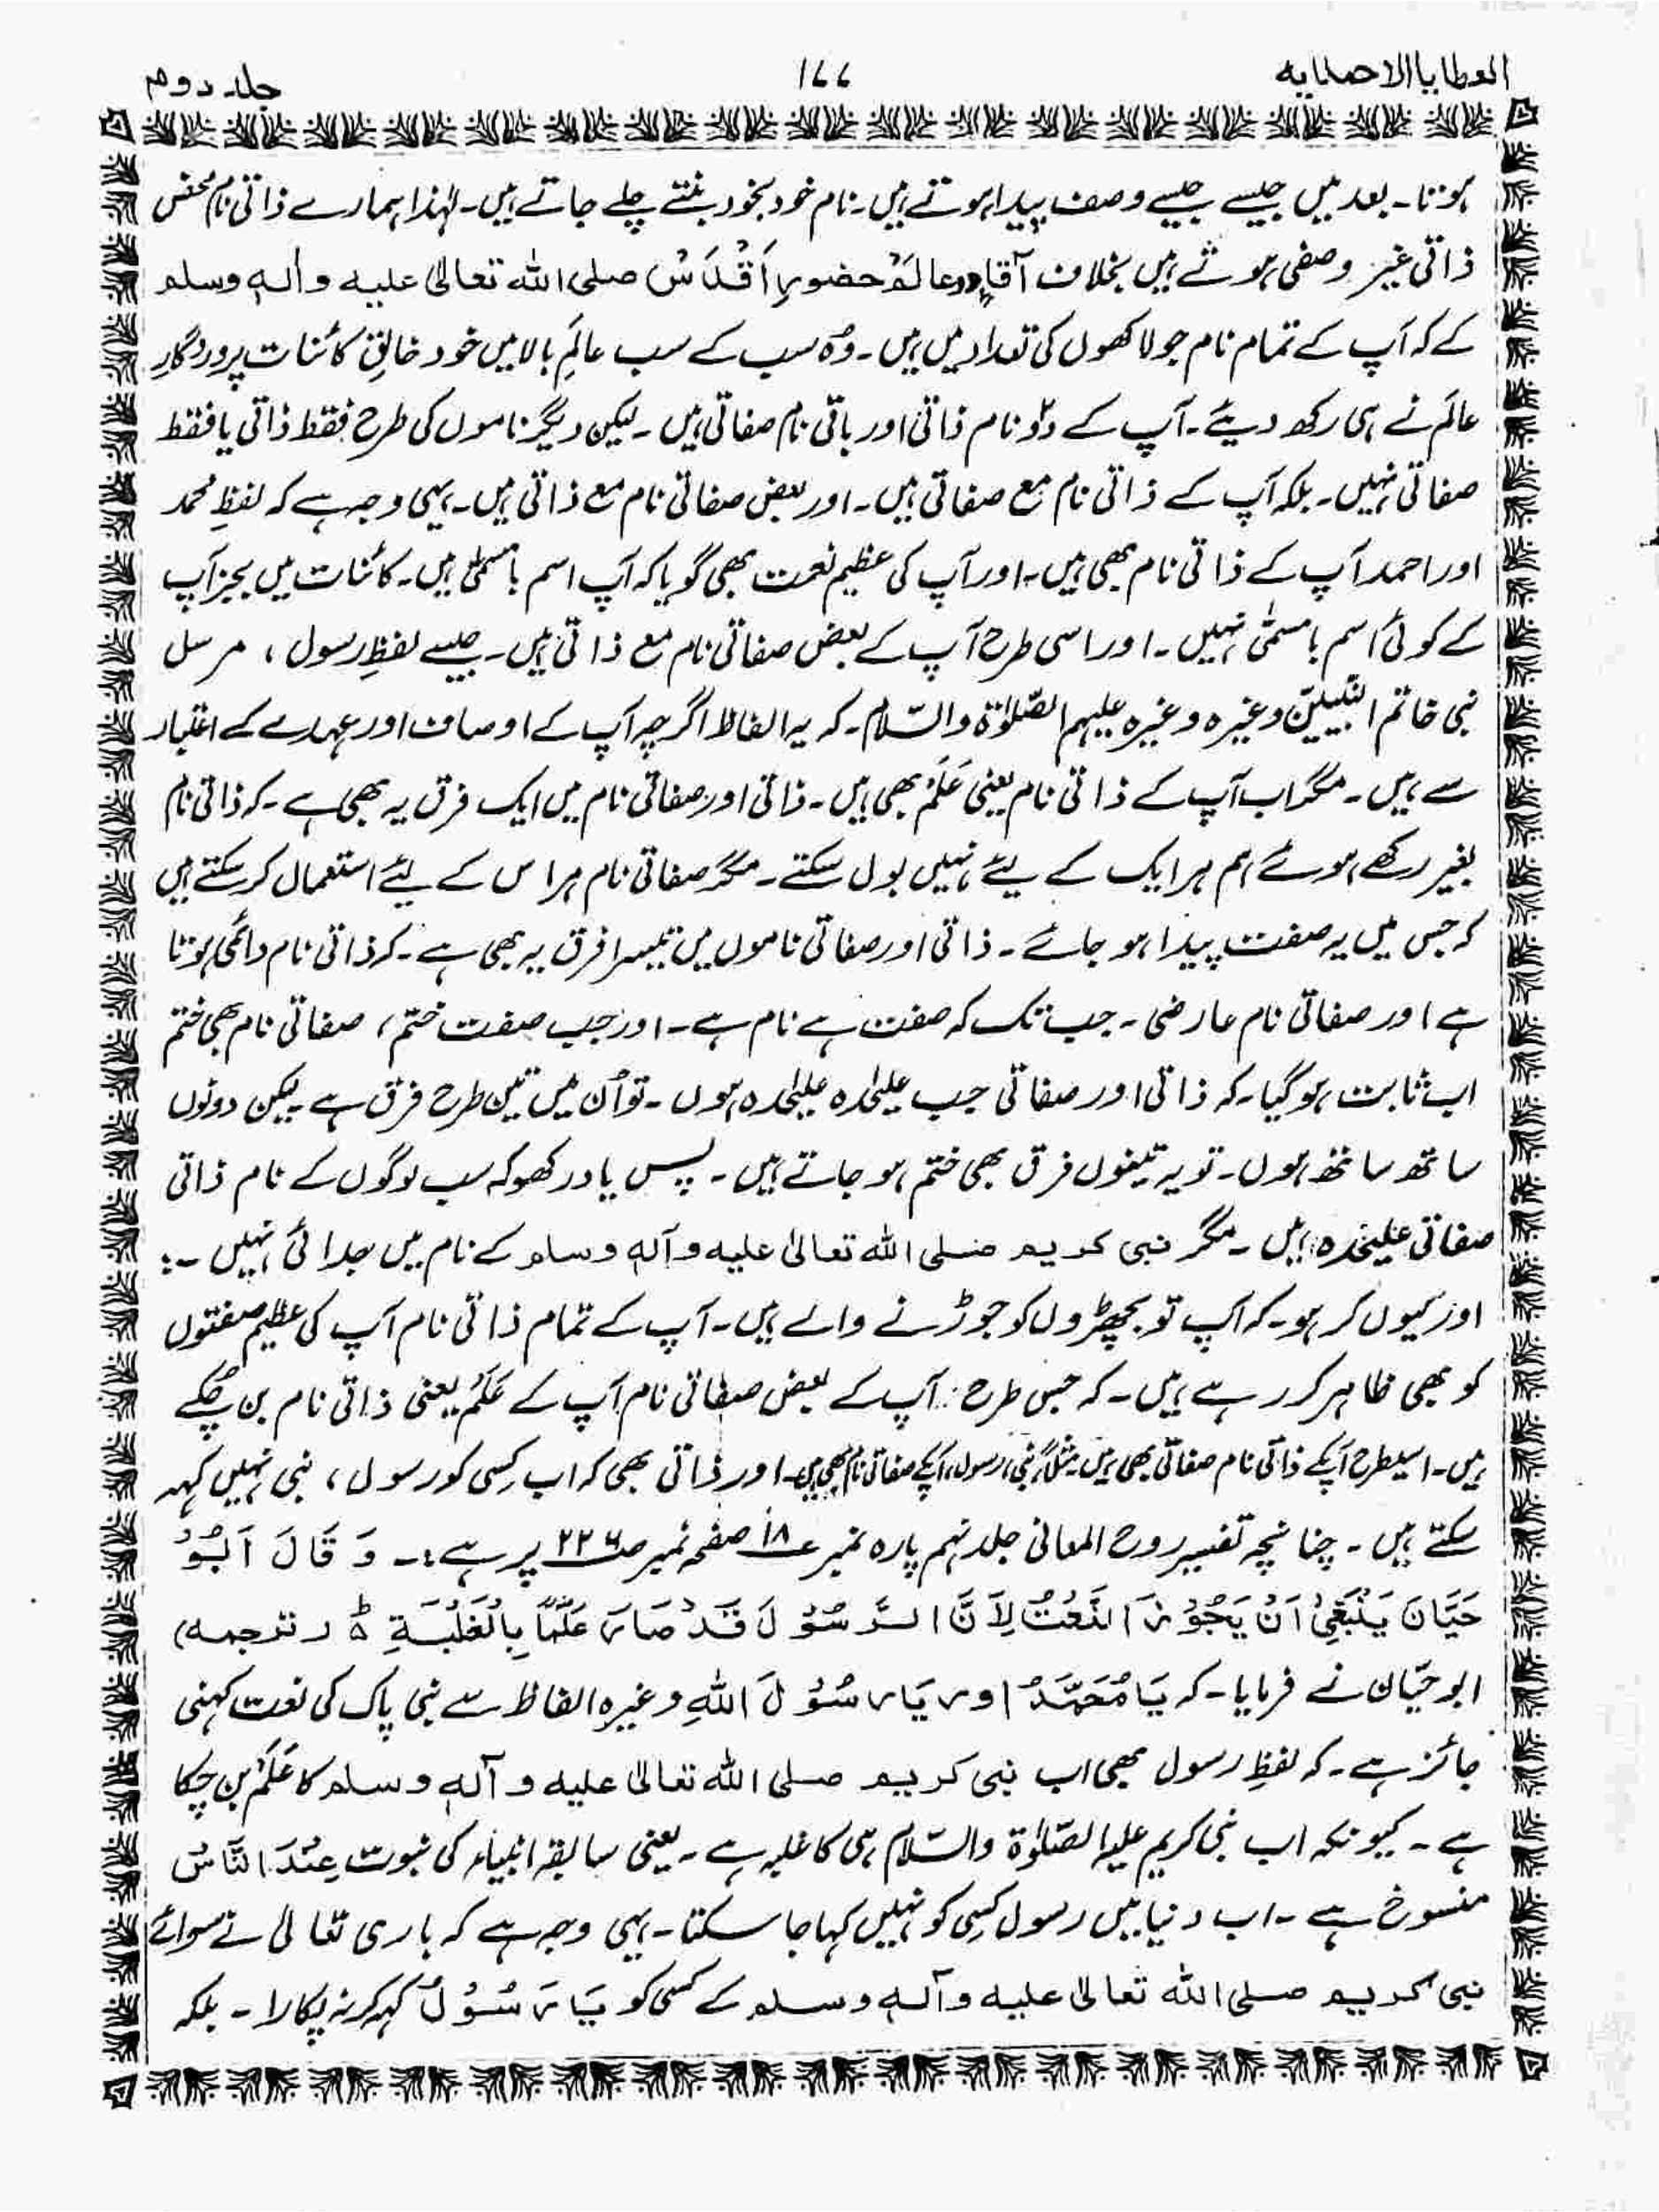 العطایا الاحمدیه ۱۷۷ جلد دوم
ہوتا۔ بعد میں جیسے جیسے وصف پیدا ہوتے ہیں۔ نام خود بخود بنتے چلے جاتے ہیں۔ لہٰذا ہمارے ذاتی نام محض
ذاتی غیر وصفی ہوتے ہیں بخلاف آقاءِ دو عالَمْ حضورِ اَقْدَسْ صلی اللہ تعالیٰ علیہ واٰلہٖ وسلم
کے کہ آپ کے تمام نام جو لاکھوں کی تعداد میں ہیں۔ وُہ سب کے سب عالَمِ بالا میں خود خالقِ کائنات پروردگارِ
عالَم نے ہی رکھ دیئے۔ آپ کے دو نام ذاتی اور باقی نام صفاتی ہیں۔ لیکن دیگر ناموں کی طرح فقط ذاتی یا فقط
صفاتی نہیں۔ بلکہ آپ کے ذاتی نام مع صفاتی ہیں۔ اور بعض صفاتی نام مع ذاتی ہیں۔ یہی وجہ ہے کہ لفظِ محمد
اور احمد آپ کے ذاتی نام بھی ہیں۔ اور آپ کی عظیم نعت بھی گویا کہ آپ اسم بامسمّٰی ہیں۔ کائنات میں بجز آپ
کے کوئی اسم بامسمّٰی نہیں۔ اور اسی طرح آپ کے بعض صفاتی نام مع ذاتی ہیں۔ جیسے لفظِ رسول، مرسل
نبی خاتم النّبیّین وغیرہ وغیرہ علیہم الصّلوٰۃ والسّلام۔ کہ یہ الفاظ اگرچہ آپ کے اوصاف اور عہدے کے اعتبار
سے ہیں۔ مگر اب آپ کے ذاتی نام یعنی عَلَمْ بھی ہیں۔ ذاتی اور صفاتی نام میں ایک فرق یہ بھی ہے۔ کہ ذاتی نام
بغیر رکھے ہوئے ہم ہر ایک کے لیے نہیں بول سکتے۔ مگر صفاتی نام ہر اس کے لیئے استعمال کر سکتے ہیں
کہ جس میں یہ صفت پیدا ہو جائے۔ ذاتی اور صفاتی ناموں میں تیسرا فرق یہ بھی ہے۔ کہ ذاتی نام دائمی ہوتا
ہے اور صفاتی نام عارضی۔ جب تک کہ صفت ہے نام ہے۔ اور جب صفت ختم، صفاتی نام بھی ختم
اب ثابت ہو گیا۔ کہ ذاتی اور صفاتی جب علیٰحدہ علیٰحدہ ہوں۔ تو اُن میں تین طرح فرق ہے۔ لیکن دونوں
ساتھ ساتھ ہوں۔ تو یہ تینوں فرق بھی ختم ہو جاتے ہیں۔ پس یاد رکھو کہ سب لوگوں کے نام ذاتی
صفاتی علیٰحدہ ہیں۔ مگر نبی کریم صلی اللہ تعالیٰ علیہ وآلہٖ وسلم کے نام میں جدائی نہیں۔:
اور کیوں کر ہو۔ کہ آپ تو بچھڑوں کو جوڑنے والے ہیں۔ آپ کے تمام ذاتی نام آپ کی عظیم صفتوں
کو بھی ظاہر کر رہے ہیں۔ کہ جس طرح آپ کے بعض صفاتی نام آپ کے عَلَمْ یعنی ذاتی نام بن چُکے
ہیں۔ اسیطرح آپکے ذاتی نام صفاتی بھی ہیں۔ مثلاً نبی، رسول، آپکے صفاتی نام بھی ہیں۔ اور ذاتی بھی کہ اب کسِی کو رسول، نبی نہیں کہہ
سکتے ہیں۔ چنانچہ تفسیر روح المعانی جلد نہم پارہ نمبر ۱۸ صفحہ نمبر ۲۲۶ پر ہے:۔ وَ قَالَ اَبُوْ
حَیَّانَ یَنْبَغِیْ اَنْ یَجُوْزَ النَّعْتُ لِاَنَّ الرَّسُوْلَ قَدْ صَارَ عَلَمًا بِالْغَلَبَۃِ ط (ترجمہ)
ابو حیّان نے فرمایا۔ کہ یَا مُحَمَّدُ اور یَا رَسُوْلَ اللہِ وغیرہ الفاظ سے نبی پاک کی نعت کہنی
جائز ہے۔ کہ لفظِ رسول بھی اب نبی کریم صلی اللہ تعالیٰ علیہ وآلہٖ وسلم کا عَلَمْ بن چکا
ہے۔ کیونکہ اب نبی کریم علیہ الصّلوٰۃ والسّلام ہی کا غلبہ ہے۔ یعنی سابقہ انبیاء کی نبوت عِنْدَ النَّاسْ
منسوخ ہے۔ اب دنیا میں رسول کسِی کو نہیں کہا جا سکتا۔ یہی وجہ ہے کہ باری تعالیٰ نے سوائے
نبی کریم صلی اللہ تعالیٰ علیہ وآلہٖ وسلم کے کسی کو یَا رَسُوْلُ کہہ کر نہ پکارا۔ بلکہ